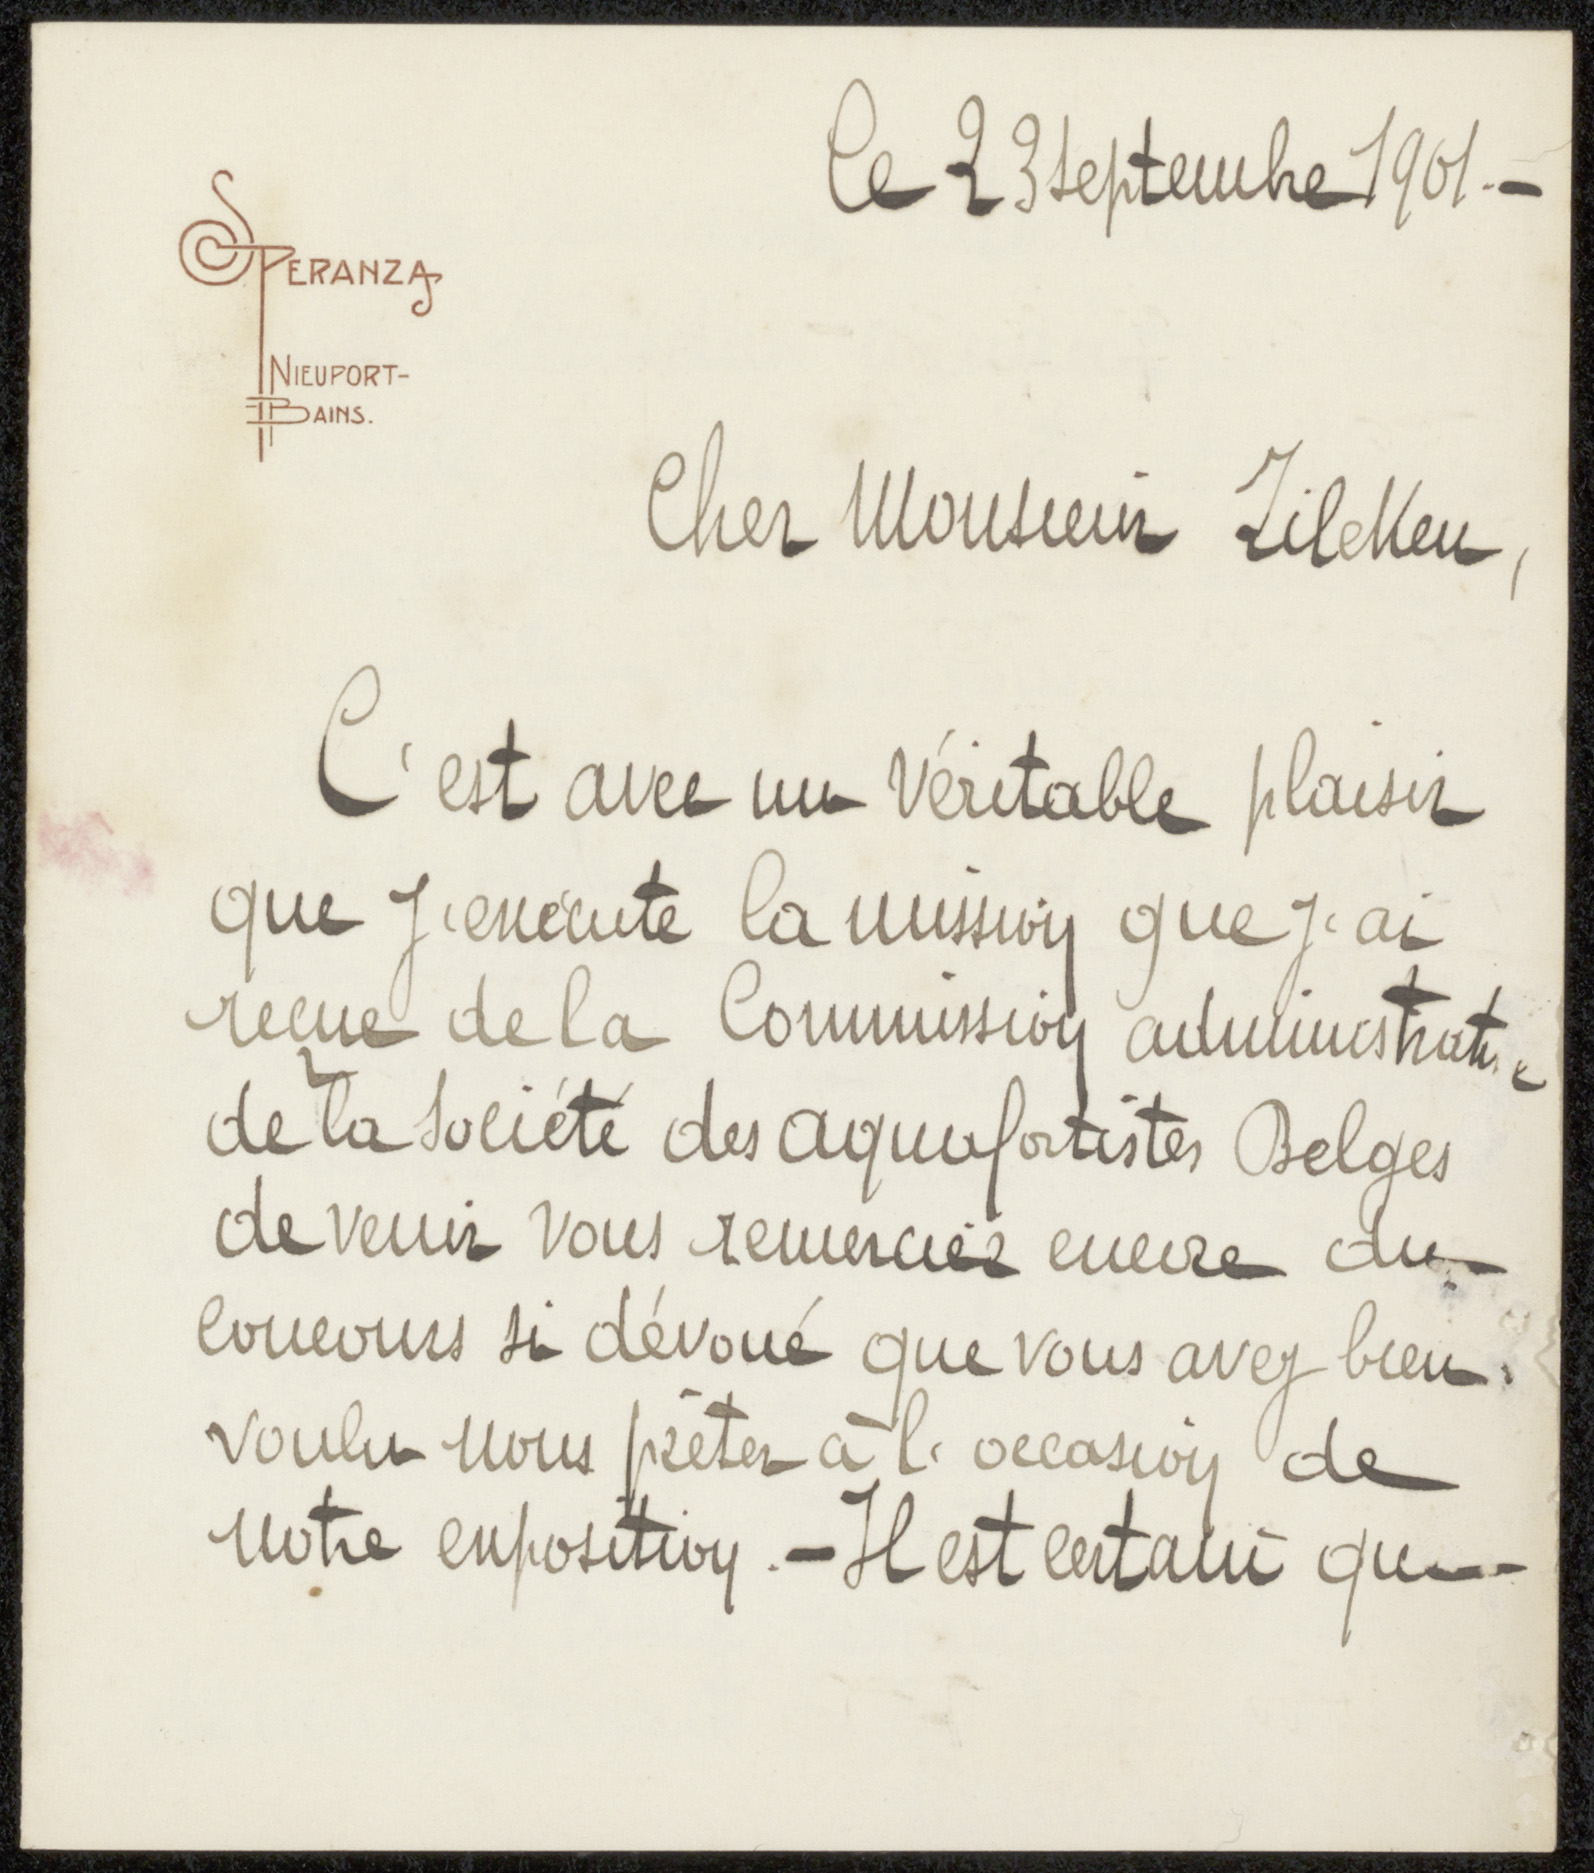 Le 23 septembre 1901.-
SPERANZA
NIEUPORT-
BAINS.
Cher Monsieur Zilcken,
C'est avec un véritable plaisir
que j'exécute la mission que j'ai
reçue de la Commission administrative
de la Société des aquafortistes Belges
de venir vous remercier encore du
concours si dévoué que vous avez bien
voulu nous prêter à l'occasion de
notre exposition. - Il est certain que